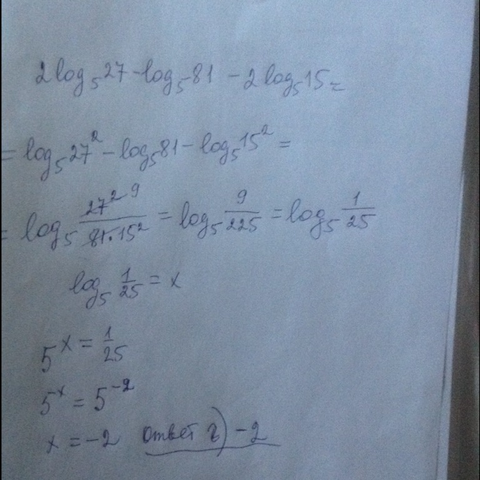 2log₅27 - log₅81 - 2log₅15 =
= log₅27² - log₅81 - log₅15² =
= log₅ 27² 9 / 81·15² = log₅ 9/225 = log₅ 1/25
log₅ 1/25 = x
5^x = 1/25
5^x = 5^-2
x = -2 ответ в) -2